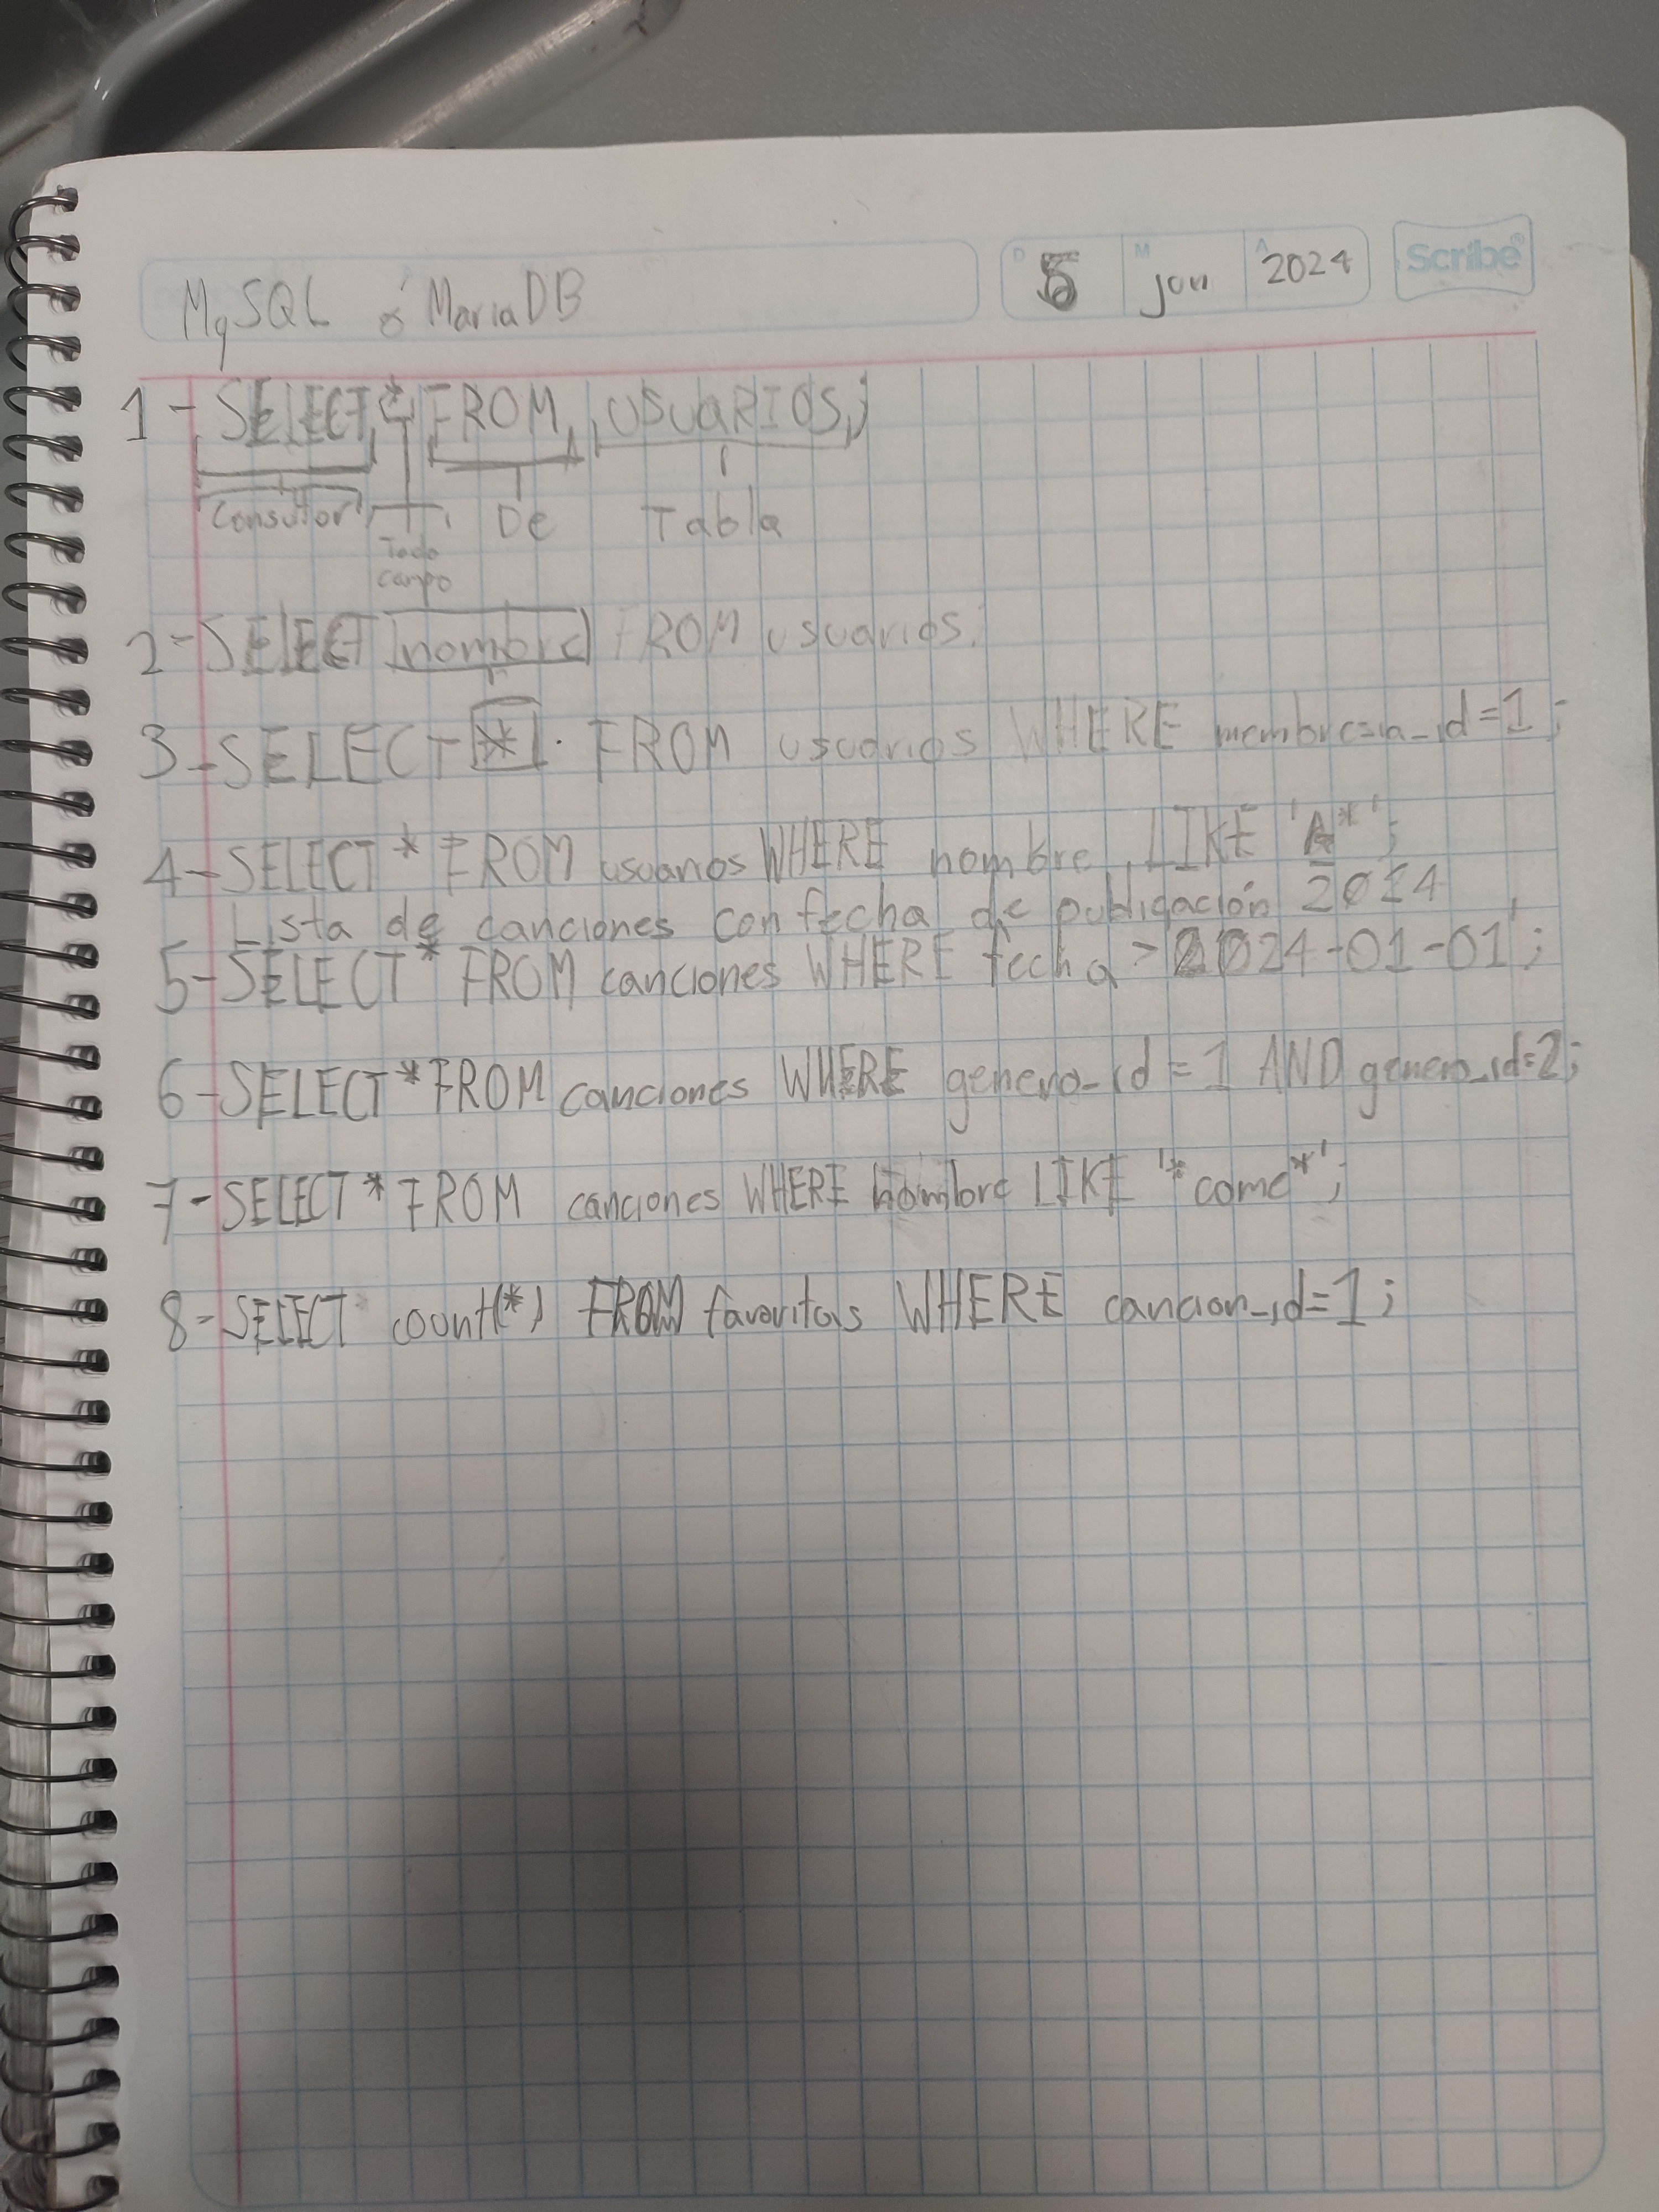 MySQL ó MariaDB
D 5 M jun A 2024 Scribe®
1- SELECT * FROM USUARIOS;
Consultor De Tabla
Todo
campo
2-SELECT nombre FROM usuarios.
3-SELECT * . FROM usuarios WHERE membresia_id=1;
4-SELECT * FROM usuarios WHERE nombre LIKE 'A*';
Lista de canciones con fecha de publicación 2024
5-SELECT * FROM canciones WHERE fecha > 2024-01-01';
6-SELECT * FROM canciones WHERE genero_id = 1 AND genero_id=2;
7-SELECT * FROM canciones WHERE nombre LIKE '*come*';
8-SELECT count(*) FROM favoritas WHERE cancion_id=1;